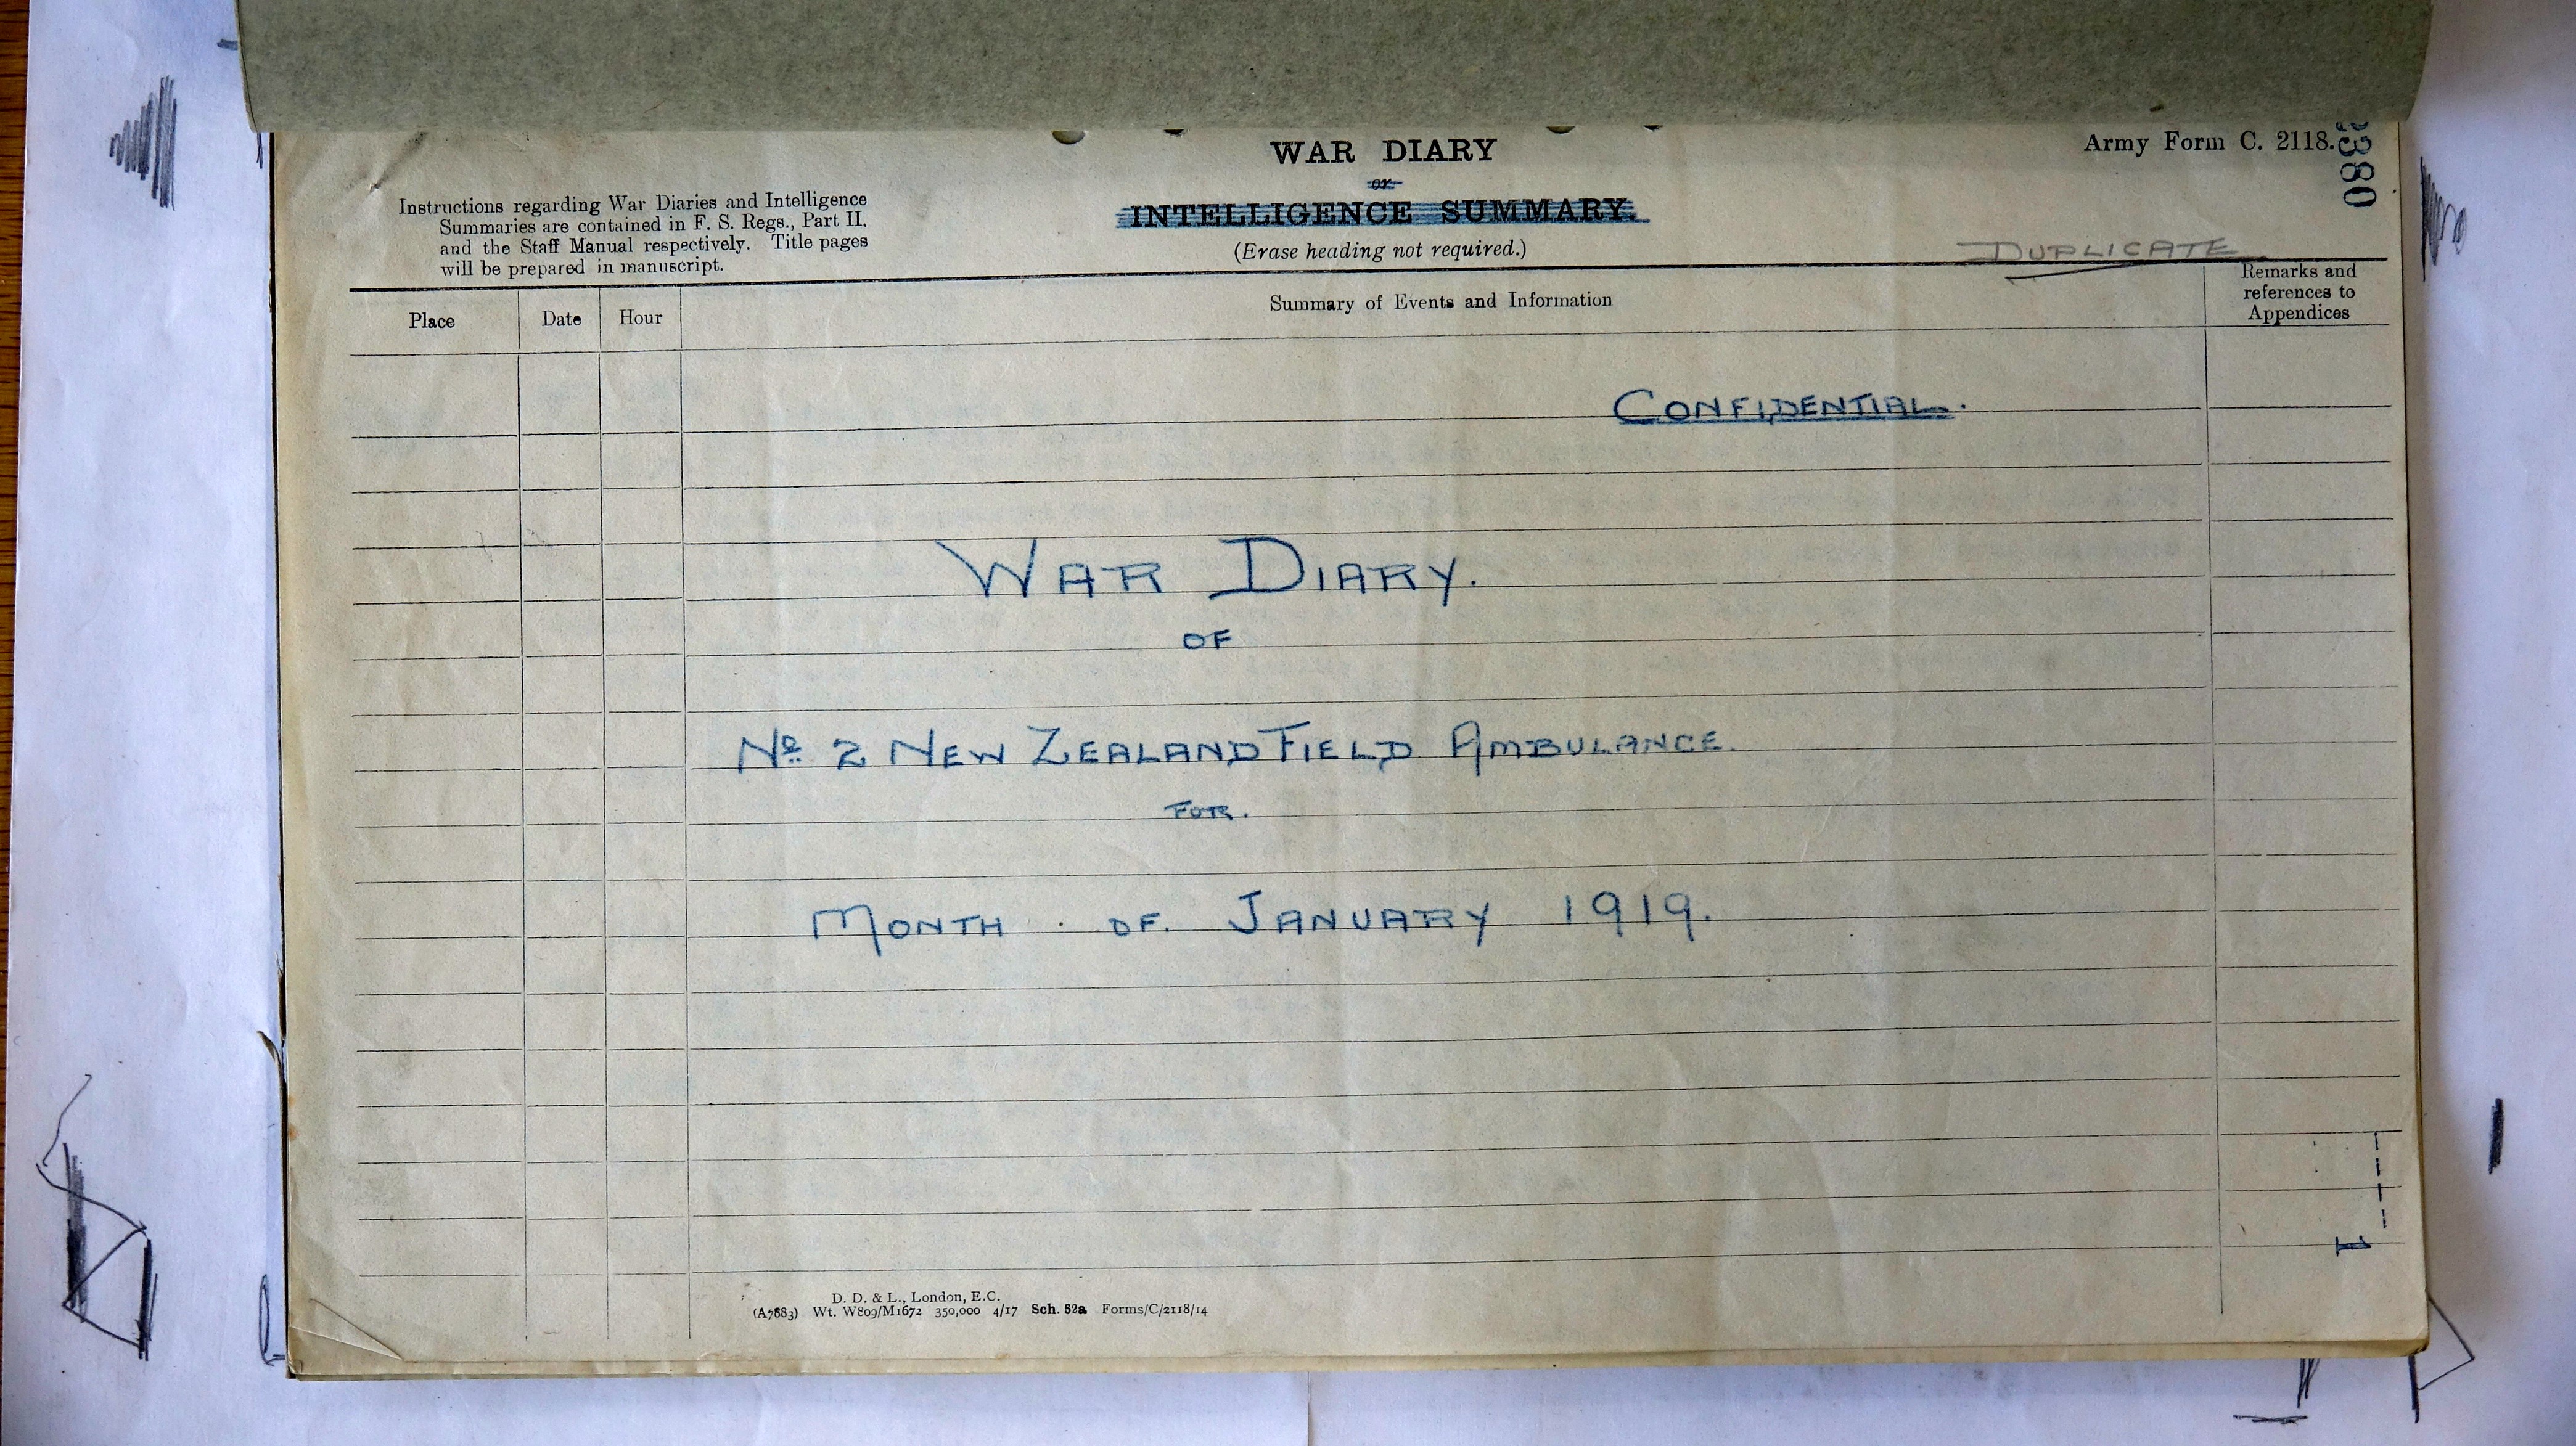 WAR DIARY
Army Form C. 2118.
or
INTELLIGENCE SUMMARY.
(Erase heading not required.)
Instructions regarding War Diaries and Intelligence
Summaries are contained in F. S. Regs., Part II.
and the Staff Manual respectively. Title pages
will be prepared in manuscript.
DUPLICATE
Place
Date
Hour
Summary of Events and Information
Remarks and
references to
Appendices
CONFIDENTIAL.
WAR DIARY.
OF
No. 2 NEW ZEALAND FIELD AMBULANCE.
FOR.
MONTH OF. JANUARY 1919.
1
D. D. & L., London, E.C.
(A7883) Wt. W809/M1672 350,000 4/17 Sch. 52a Forms/C/2118/14